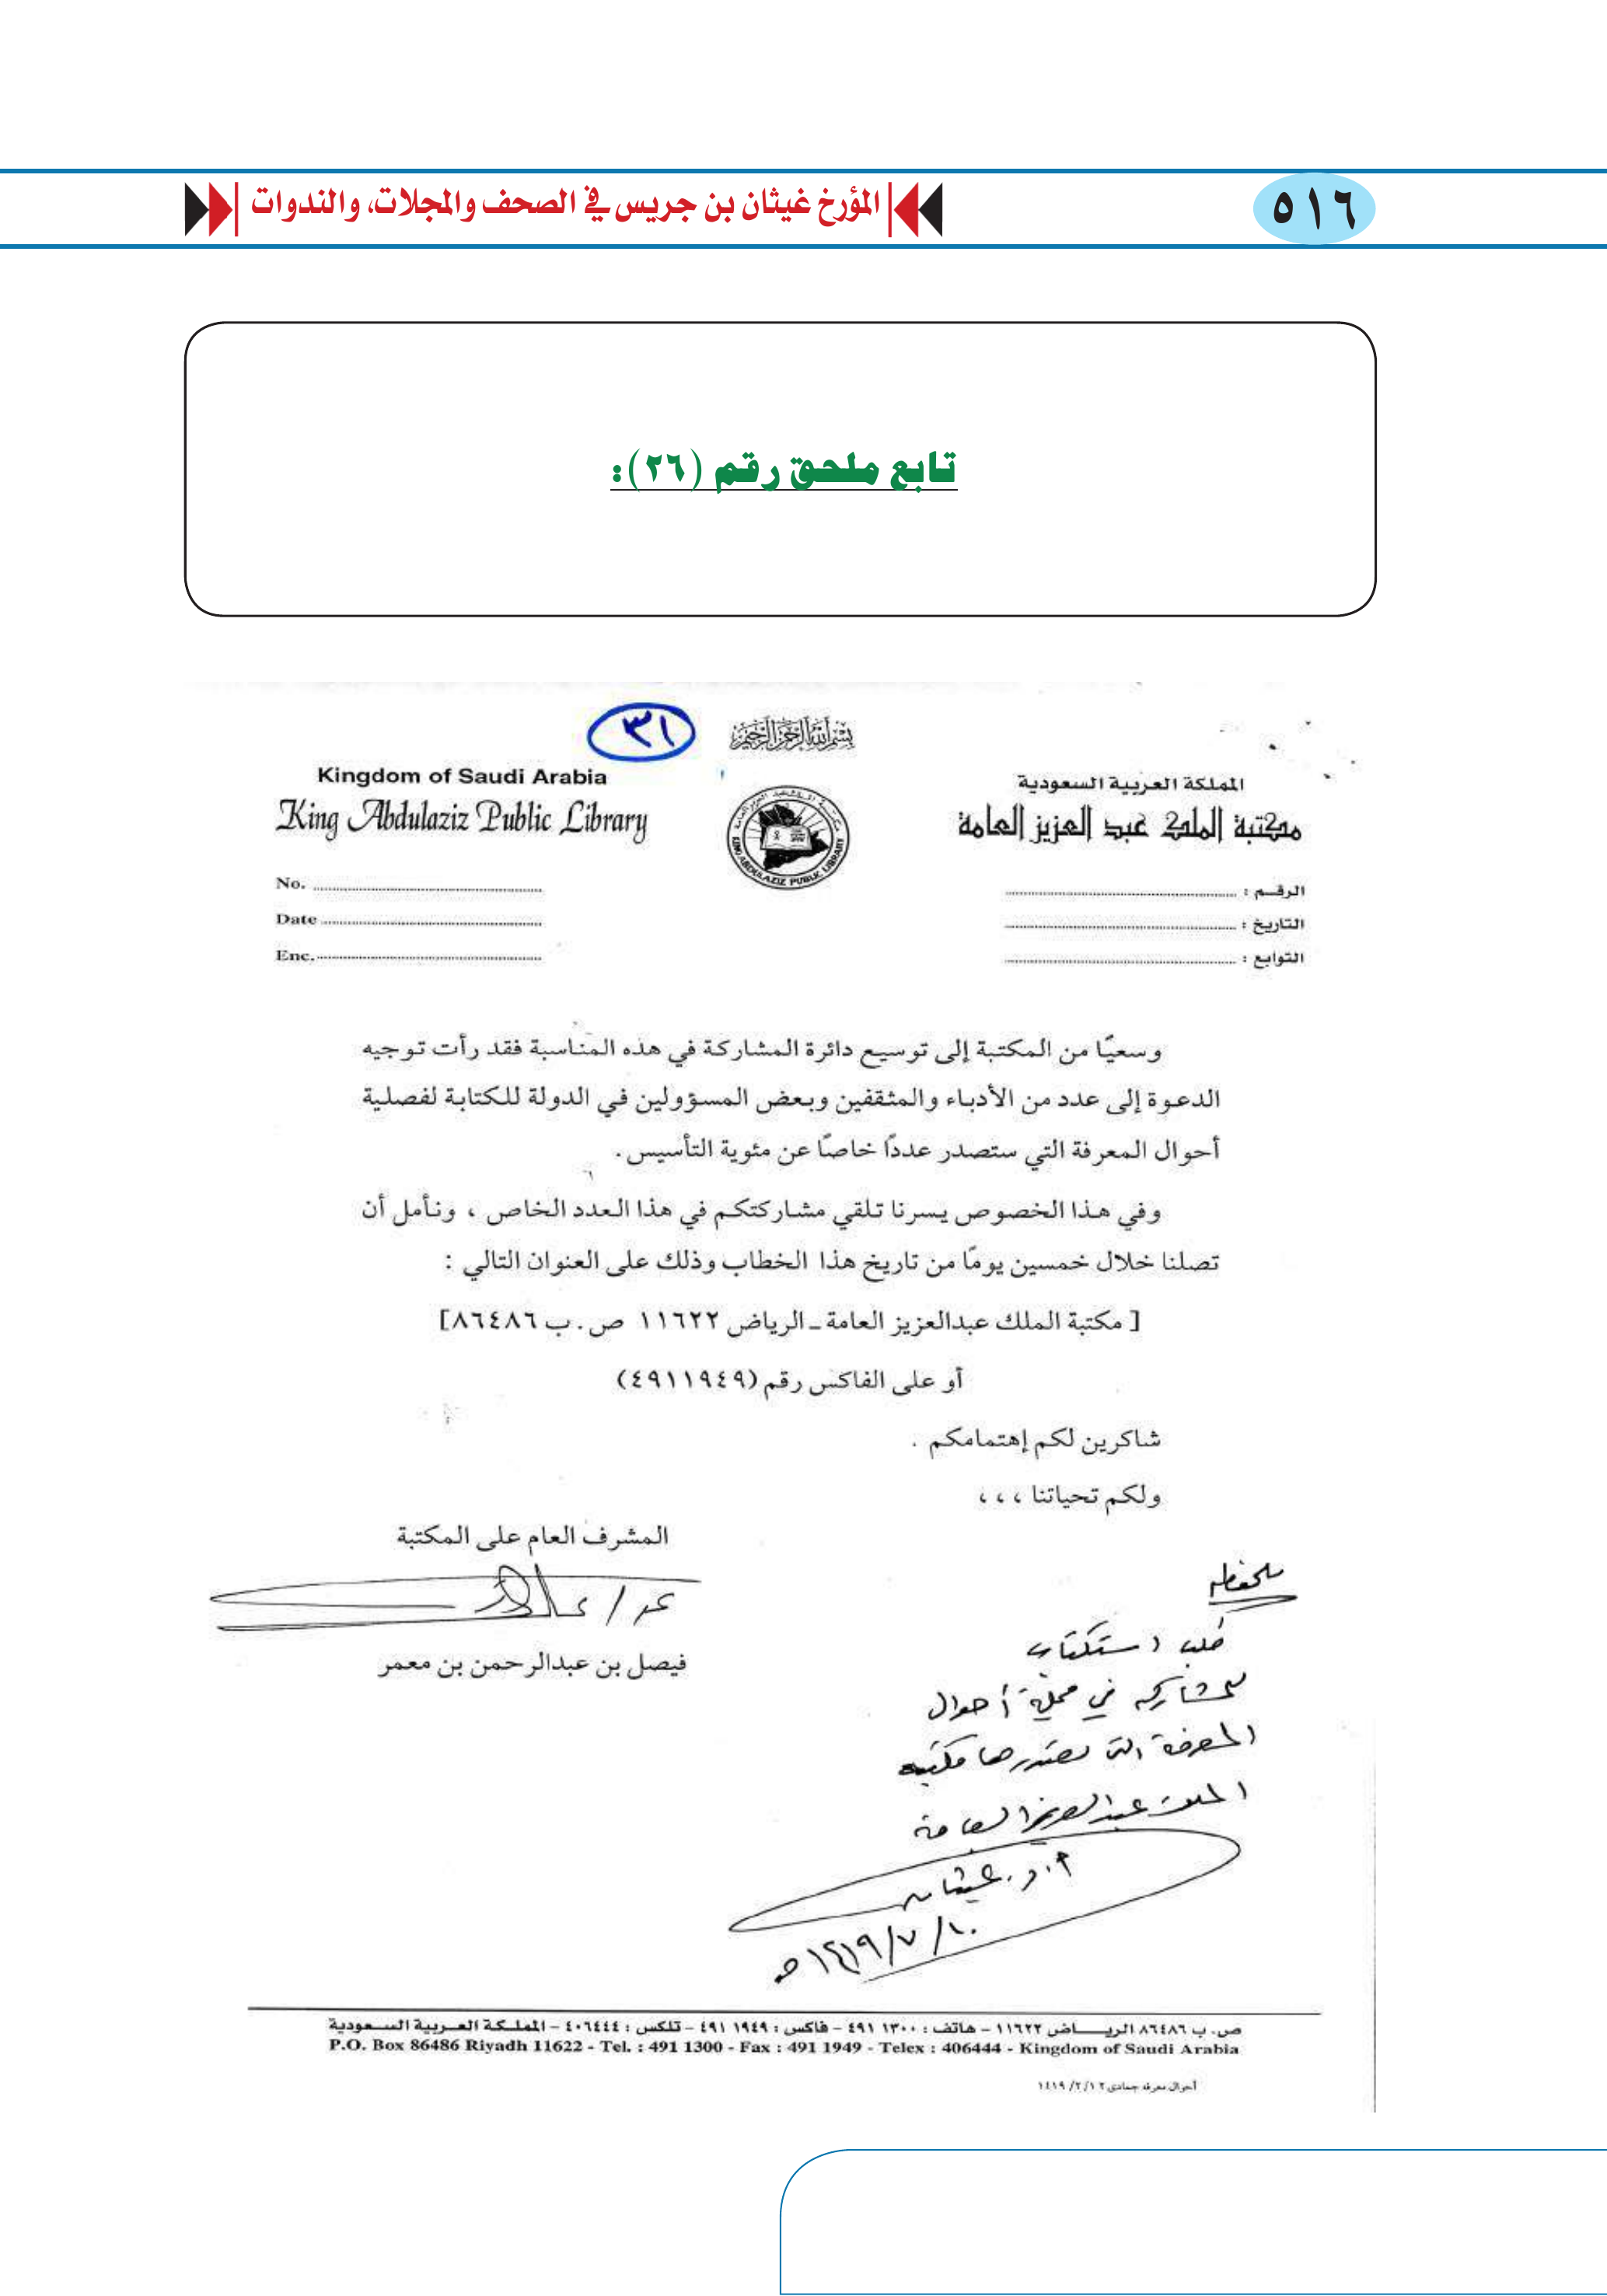 ٥١٦
المؤرخ غيثان بن جريس في الصحف والمجلات، والندوات
تابع ملحق رقم (٢٦):
٣١
بسم الله الرحمن الرحيم
Kingdom of Saudi Arabia
King Abdulaziz Public Library
No.
Date
Enc.
KING ABDULAZIZ PUBLIC LIBRARY
المملكة العربية السعودية
مكتبة الملك عبد العزيز العامة
الرقـم :
التاريخ :
التوابع :
وسعيًا من المكتبة إلى توسيع دائرة المشاركة في هذه المناسبة فقد رأت توجيه
الدعوة إلى عدد من الأدباء والمثقفين وبعض المسؤولين في الدولة للكتابة لفصلية
أحوال المعرفة التي ستصدر عددًا خاصًا عن مئوية التأسيس .
وفي هذا الخصوص يسرنا تلقي مشاركتكم في هذا العدد الخاص ، ونأمل أن
تصلنا خلال خمسين يومًا من تاريخ هذا الخطاب وذلك على العنوان التالي :
[ مكتبة الملك عبدالعزيز العامة ـ الرياض ١١٦٢٢ ص . ب ٨٦٤٨٦]
أو على الفاكس رقم (٤٩١١٩٤٩)
شاكرين لكم إهتمامكم .
ولكم تحياتنا ، ، ،
المشرف العام على المكتبة
فيصل بن عبدالرحمن بن معمر
ملحوظة
طلب استكتاب
للمشاركة في مجلة أحوال
المعرفة التي تصدرها مكتبة
الملك عبدالعزيز العامة
أ.د. غيثان
١٤١٩/٧/١٠هـ
ص. ب ٨٦٤٨٦ الريـــاض ١١٦٢٢ – هاتف : ١٣٠٠ ٤٩١ – فاكس : ١٩٤٩ ٤٩١ – تلكس : ٤٠٦٤٤٤ – المملـكـة العــربيـة السـعودية
P.O. Box 86486 Riyadh 11622 - Tel. : 491 1300 - Fax : 491 1949 - Telex : 406444 - Kingdom of Saudi Arabia
أحوال معرفه جمادى ١٤١٩/٢/١٢